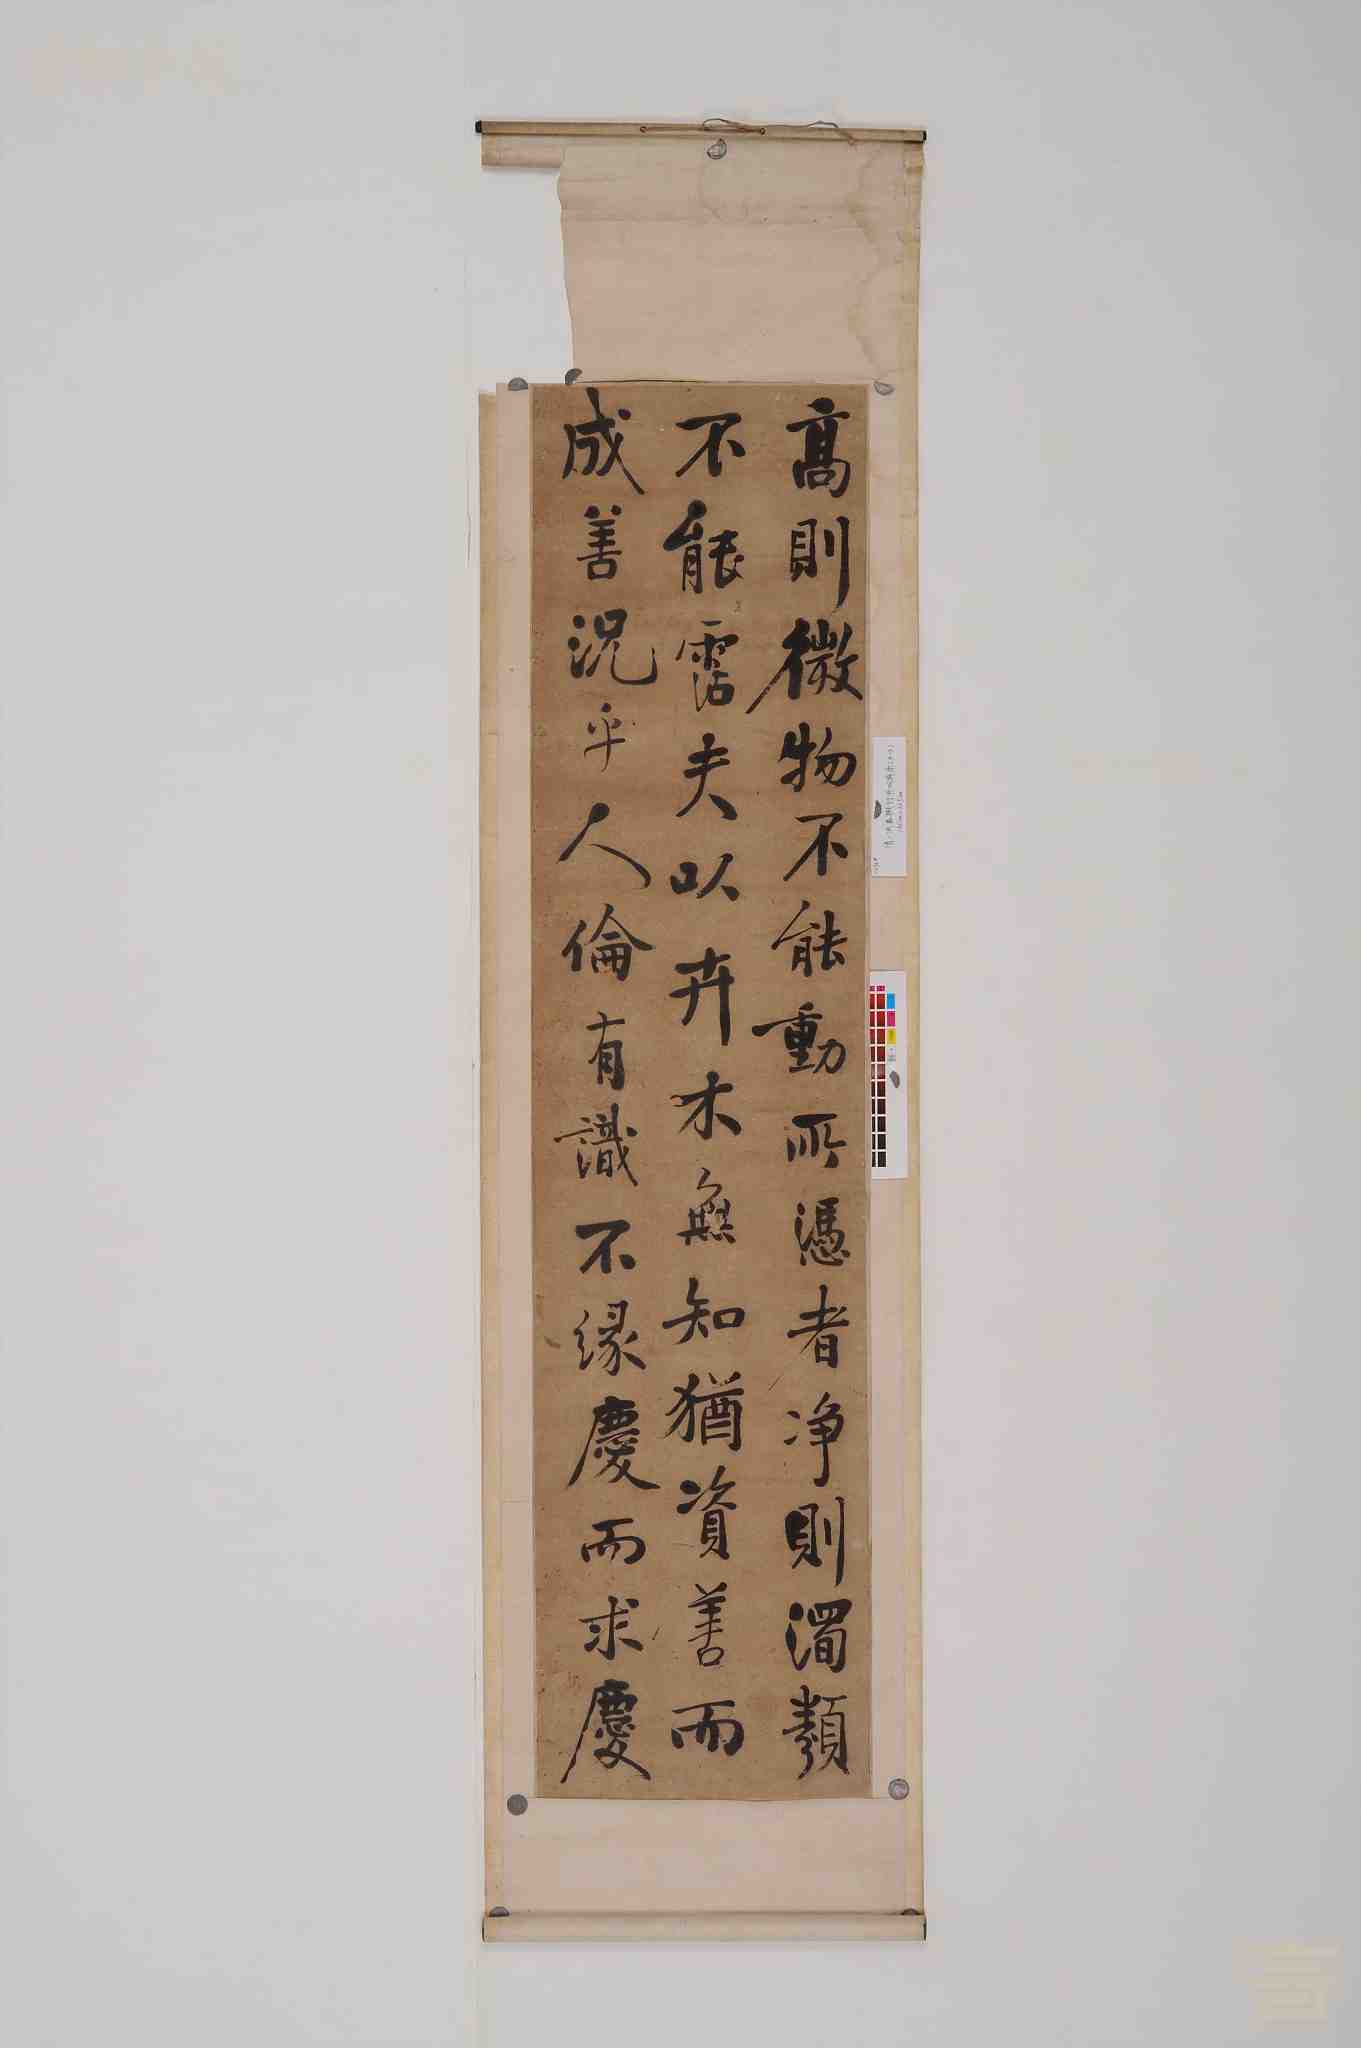 高則微物不能動所憑者净則濁類
不能霑夫以卉木無知猶資善而
成善況乎人倫有識不緣慶而求慶